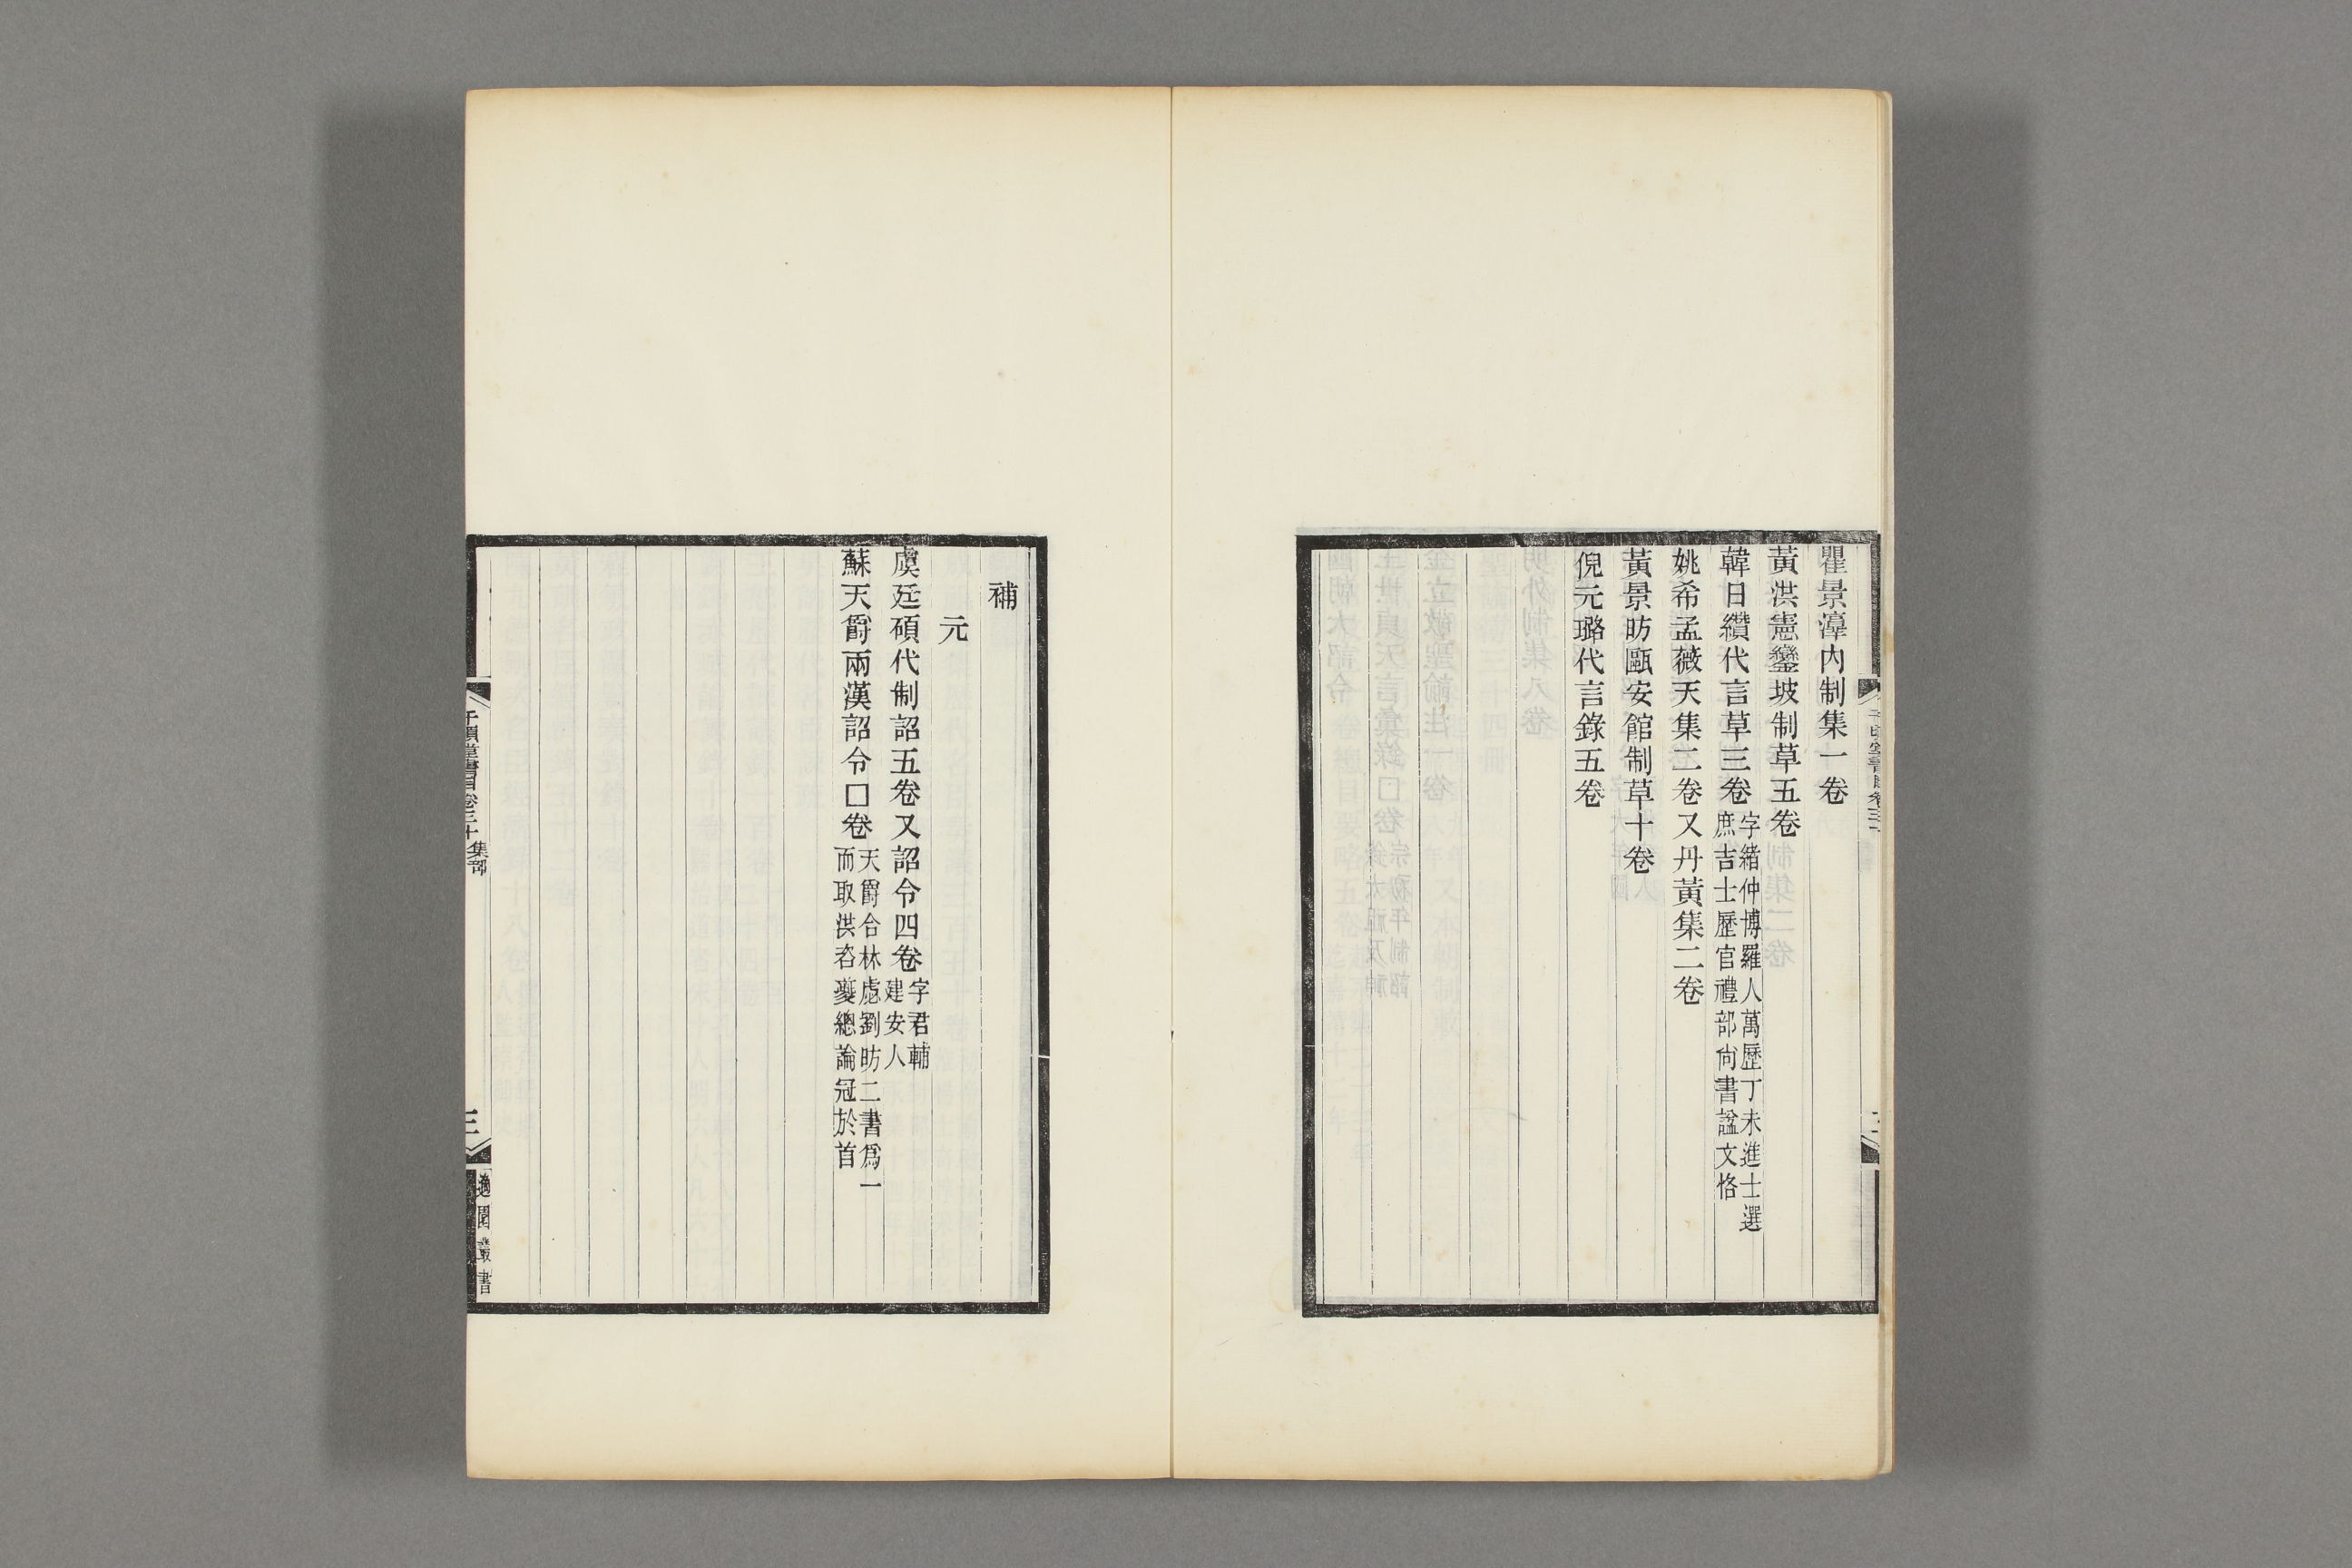 瞿景淳內制集一卷
黃洪憲鑾坡制草五卷
韓日纘代言草三卷字緒仲博羅人萬歷丁未進士選
庶吉士歷官禮部尚書諡文恪
姚希孟薇天集二卷又丹黃集二卷
黃景昉甌安館制草十卷
倪元璐代言錄五卷
補
元
虞廷碩代制詔五卷又詔令四卷字君輔
建安人
蘇天爵兩漢詔令囗卷天爵合林虙劉昉二書爲一
而取洪咨夔總論冠於首
千頃堂書目卷三十集部
三
適園叢書